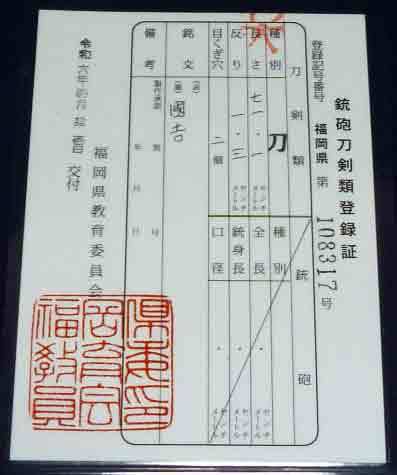 銃砲刀剣類登録証
登録記号番号 福岡県 第 108317 号
刀剣類
種別 刀
長さ 七一・一 センチメートル
反り 一・三 センチメートル
目くぎ穴 二個
銘文
備考 製作承認 第 号
年 月 日
銃砲
種別
全長 ・ センチメートル
銃身長 ・ センチメートル
口径 ・ センチメートル
令和 六年 交付
福岡県教育委員会